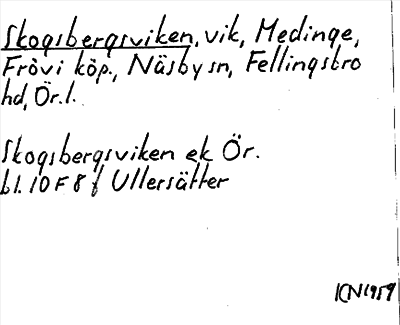 Skogsbergsviken, vik, Medinge,
Frövi köp., Näsby sn, Fellingsbro
hd, Ör. l.
Skogsbergsviken ek Ör.
bl. 10 F 8 f Ullersätter
KN 1959